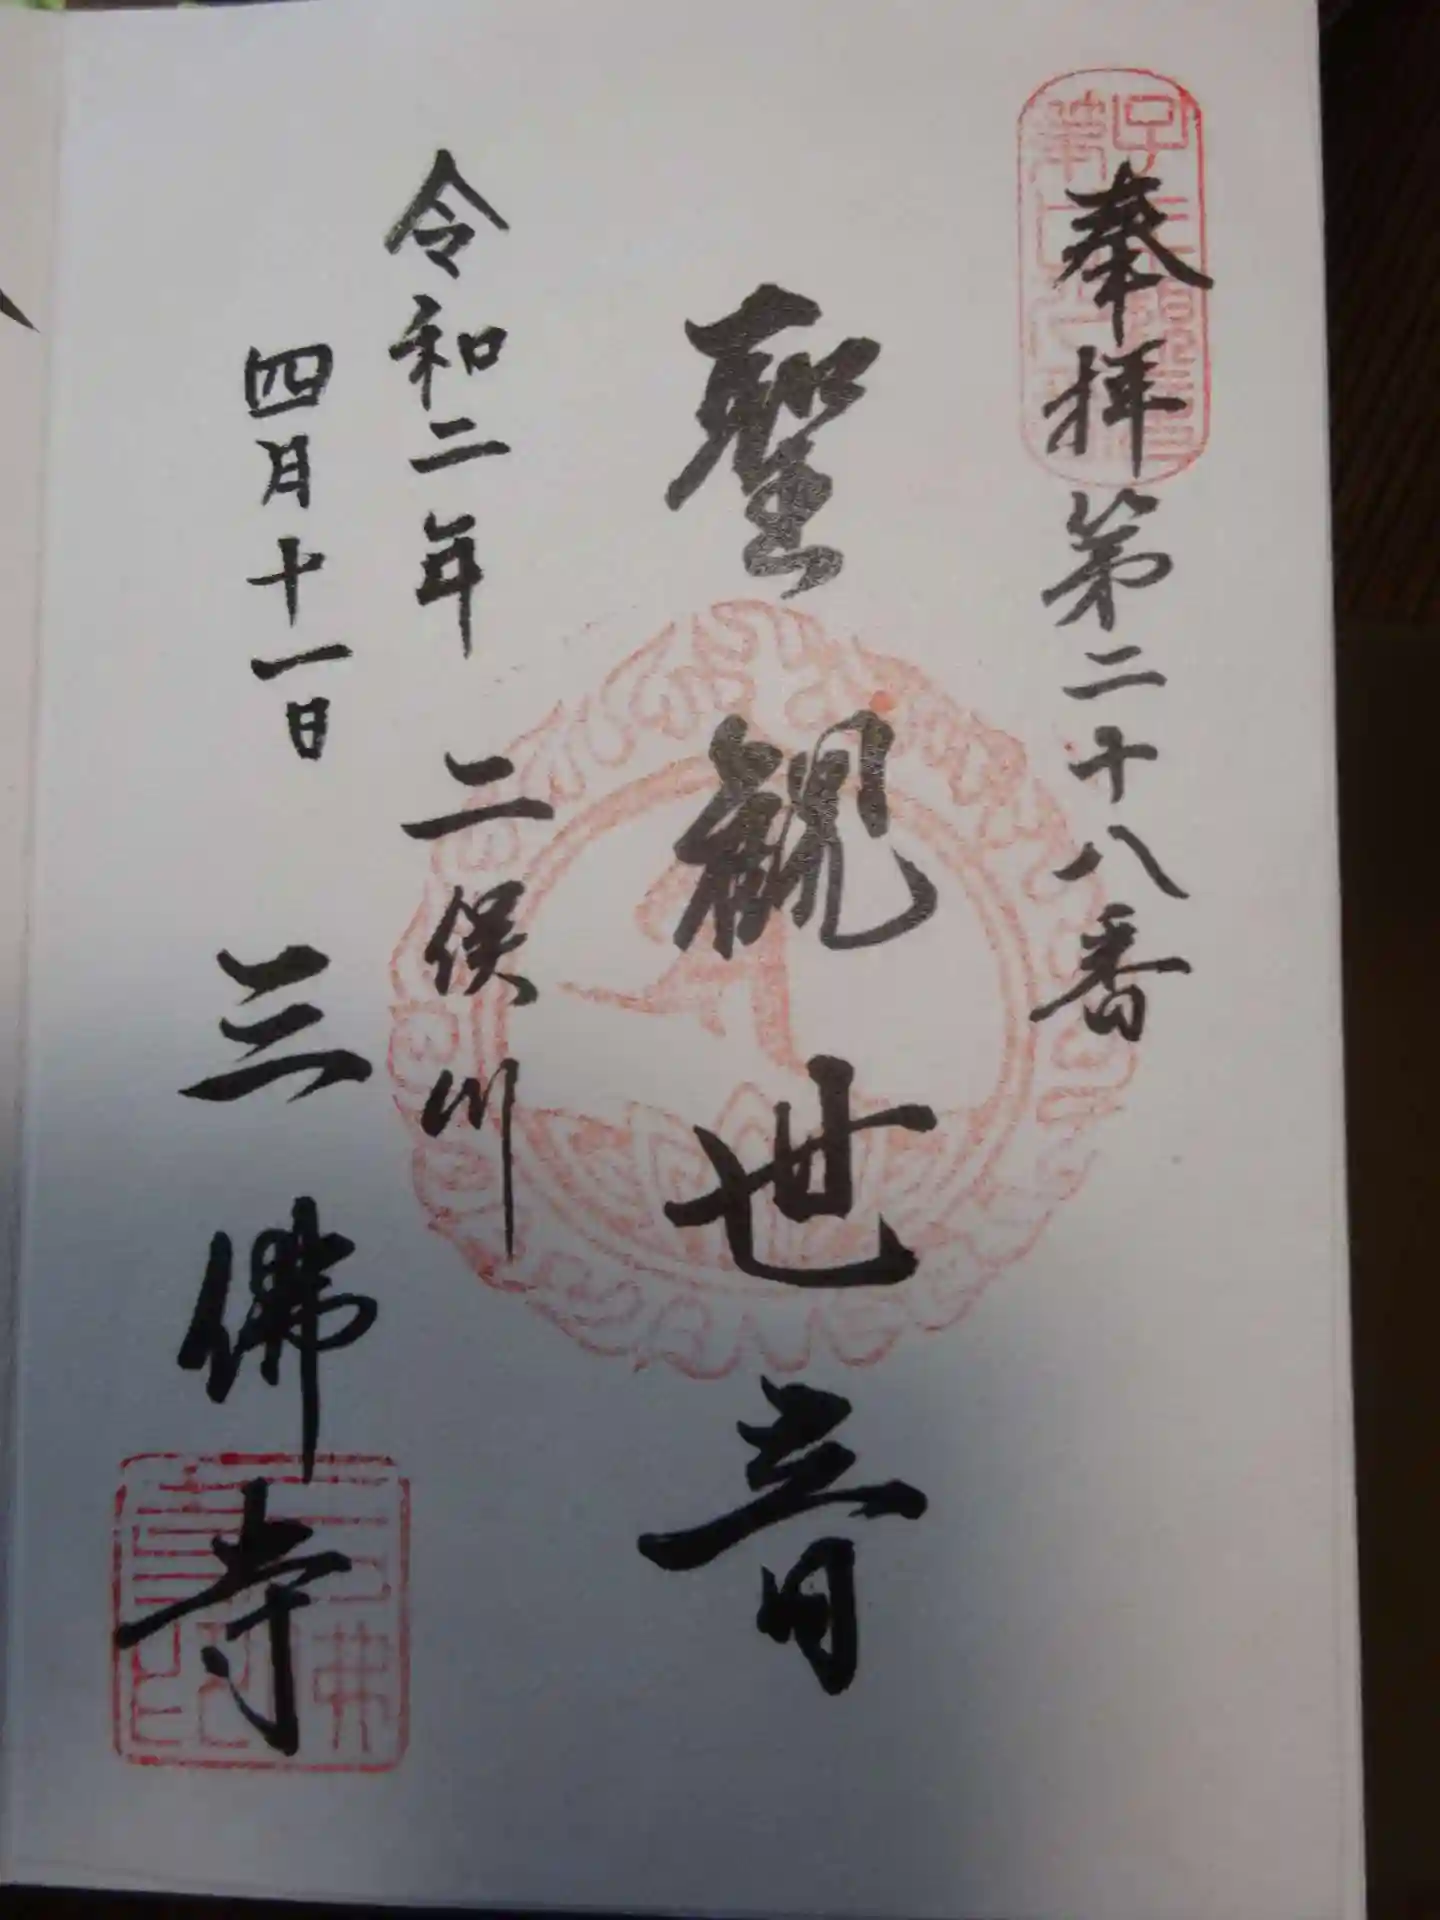 奉拝 第二十八番
聖観世音
令和二年
四月十一日
二俣川
三佛寺